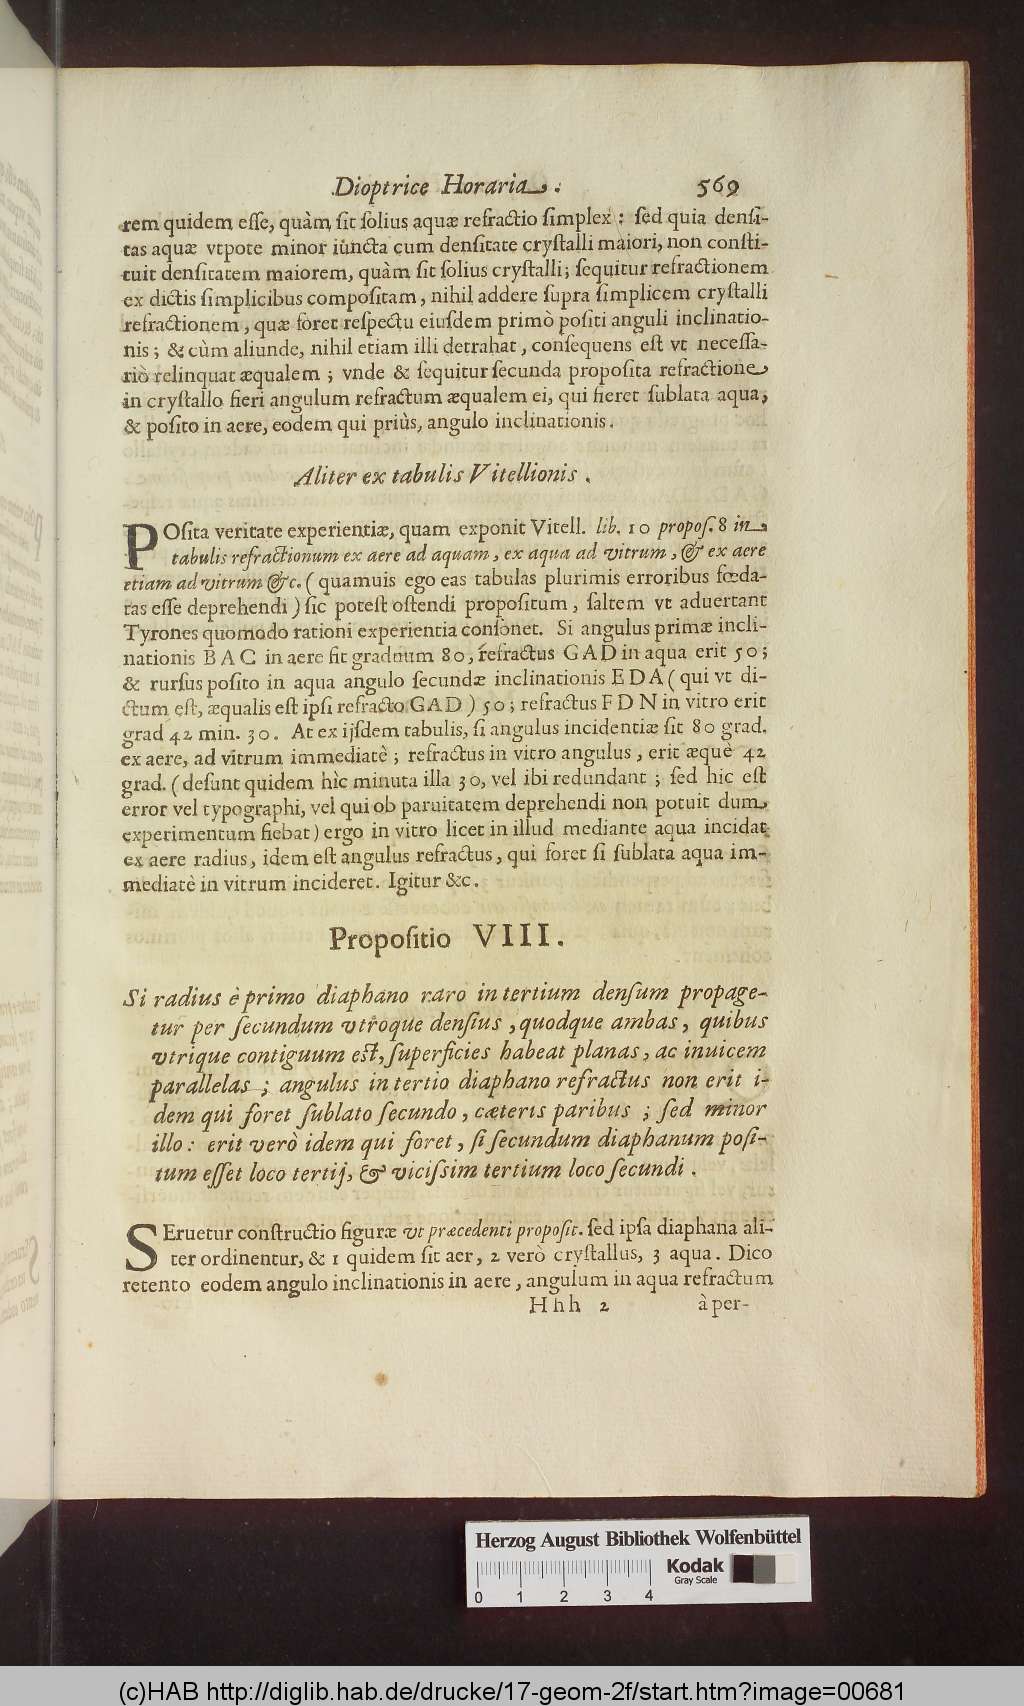 Dioptrice Horaria. 569
rem quidem esse, quàm sit solius aquæ refractio simplex: sed quia densi-
tas aquæ vtpote minor iuncta cum densitate crystalli maiori, non consti-
tuit densitatem maiorem, quàm sit solius crystalli; sequitur refractionem
ex dictis simplicibus compositam, nihil addere supra simplicem crystalli
refractionem, quæ foret respectu eiusdem primò positi anguli inclinatio-
nis; & cùm aliunde, nihil etiam illi detrahat, consequens est vt necessa-
riò relinquat æqualem; vnde & sequitur secunda proposita refractione
in crystallo fieri angulum refractum æqualem ei, qui fieret sublata aqua,
& posito in aere, eodem qui priùs, angulo inclinationis.
Aliter ex tabulis Vitellionis.
POsita veritate experientiæ, quam exponit Vitell. lib. 10 propos. 8 in
tabulis refractionum ex aere ad aquam, ex aqua ad vitrum, & ex aere
etiam ad vitrum &c. (quamuis ego eas tabulas plurimis erroribus fœda-
tas esse deprehendi) sic potest ostendi propositum, saltem vt aduertant
Tyrones quomodo rationi experientia consonet. Si angulus primæ incli-
nationis BAC in aere sit graduum 80, refractus GAD in aqua erit 50;
& rursus posito in aqua angulo secundæ inclinationis EDA (qui vt di-
ctum est, æqualis est ipsi refracto GAD) 50; refractus FDN in vitro erit
grad 42 min. 30. At ex ijsdem tabulis, si angulus incidentiæ sit 80 grad.
ex aere, ad vitrum immediatè; refractus in vitro angulus, erit æquè 42
grad. (desunt quidem hìc minuta illa 30, vel ibi redundant; sed hic est
error vel typographi, vel qui ob paruitatem deprehendi non potuit dum
experimentum fiebat) ergo in vitro licet in illud mediante aqua incidat
ex aere radius, idem est angulus refractus, qui foret si sublata aqua im-
mediatè in vitrum incideret. Igitur &c.
Propositio VIII.
Si radius è primo diaphano raro in tertium densum propage-
tur per secundum vtroque densius, quodque ambas, quibus
vtrique contiguum est, superficies habeat planas, ac inuicem
parallelas; angulus in tertio diaphano refractus non erit i-
dem qui foret sublato secundo, cæteris paribus; sed minor
illo: erit verò idem qui foret, si secundum diaphanum posi-
tum esset loco tertij, & vicissim tertium loco secundi.
SEruetur constructio figuræ vt præcedenti proposit. sed ipsa diaphana ali-
ter ordinentur, & 1 quidem sit aer, 2 verò crystallus, 3 aqua. Dico
retento eodem angulo inclinationis in aere, angulum in aqua refractum
Hhh 2 à per-
Herzog August Bibliothek Wolfenbüttel
Kodak
Gray Scale
0 1 2 3 4
(c)HAB http://diglib.hab.de/drucke/17-geom-2f/start.htm?image=00681